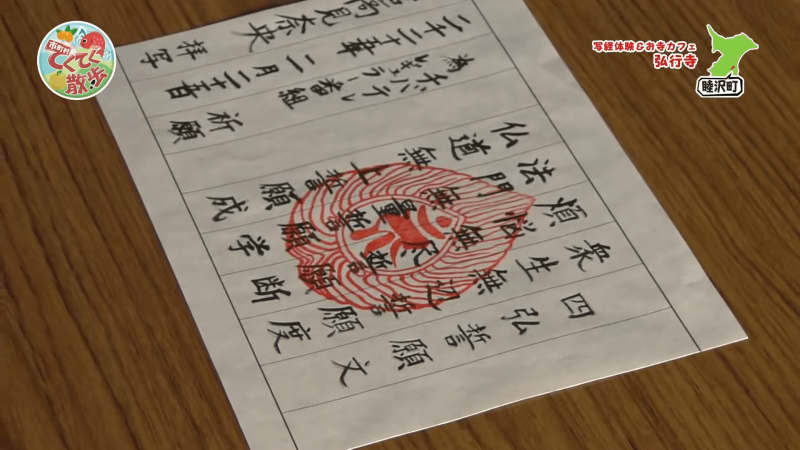 市町村
てくてく
散歩
写経体験&お寺カフェ
弘行寺
睦沢町
四弘誓願文
衆生無辺誓願度
煩悩無尽誓願断
法門無量誓願学
仏道無上誓願成
為
チバテレ番組
祈願
二月二十
奈央
拝写